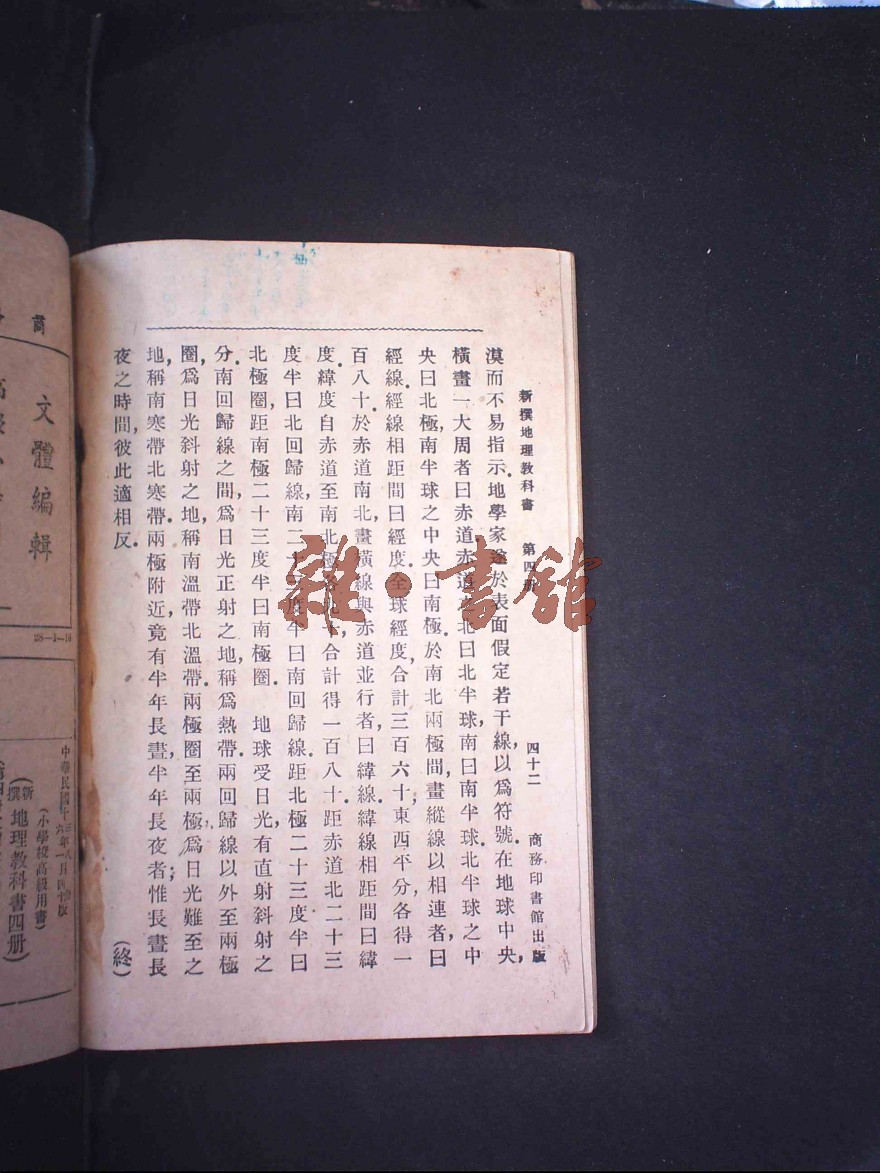 新撰地理教科書 第四冊 四十二 商務印書館出版
漠而不易指示.地學家遂於表面假定若干線,以爲符號.在地球中央,
橫畫一大周者曰赤道.赤道 北曰北半球,南曰南半球.北半球之中
央曰北極,南半球之中央曰南極.於南北兩極間,畫縱線以相連者,曰
經線.經線相距間曰經度.全球經度,合計三百六十,東西平分,各得一
百八十.於赤道南北,畫橫線與赤道並行者,曰緯線.緯線相距間曰緯
度.緯度自赤道至南北極各九十,合計得一百八十.距赤道北二十三
度半曰北回歸線,南二十三度半曰南回歸線.距北極二十三度半曰
北極圈,距南極二十三度半曰南極圈. 地球受日光,有直射斜射之
分.南回歸線之間,爲日光正射之地,稱爲熱帶.兩回歸線以外至兩極
圈,爲日光斜射之地,稱南溫帶北溫帶.兩極圈至兩極,爲日光難至之
地,稱南寒帶北寒帶.兩極附近,竟有半年長晝,半年長夜者;惟長晝長
夜之時間,彼此適相反.
(終)
雜·書館
商
文體編輯
高級小
28—1—10
中華民國十
(小學校高級用書)
(新撰地理教科書四册)